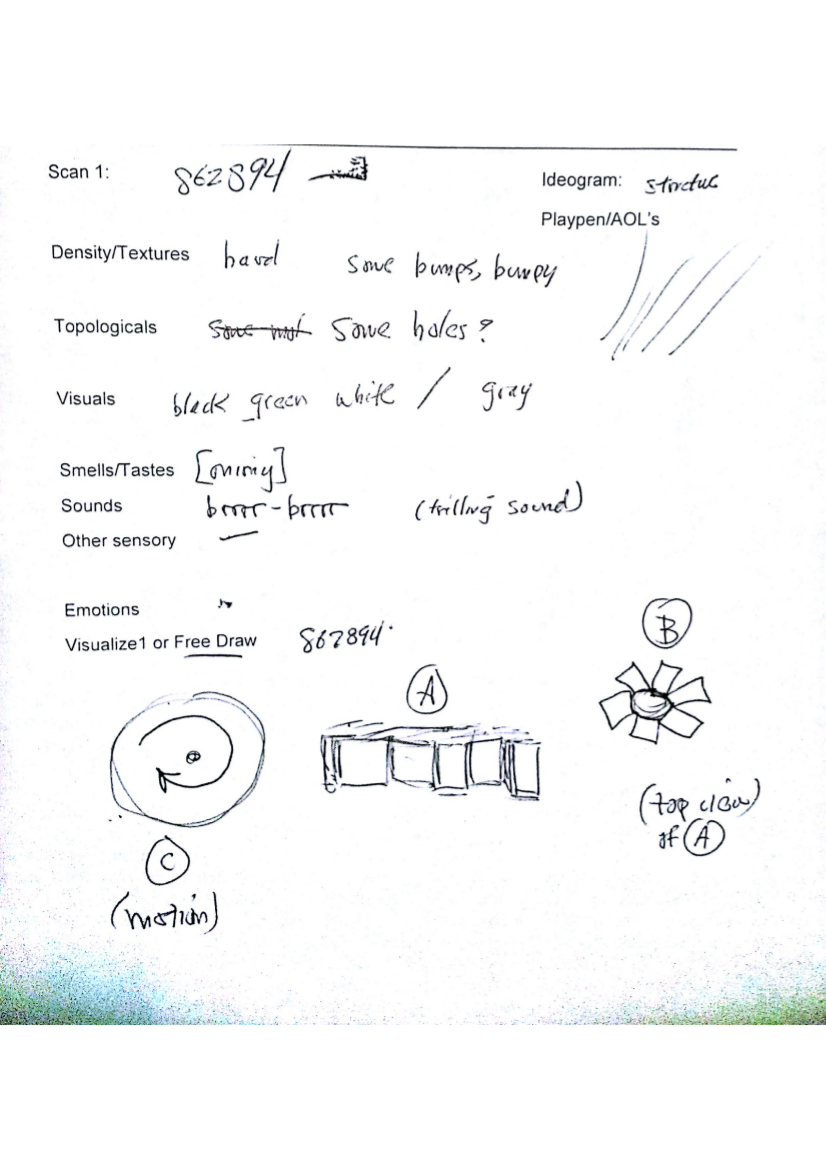 Scan 1: 862894
Ideogram:
Playpen/AOL's
Density/Textures hard some bumps, bumpy
Topologicals Some holes?
Visuals black green white / gray
Smells/Tastes
Sounds brrrr-brrrr (trilling sound)
Other sensory —
Emotions
Visualize1 or Free Draw 867894
A
B
(top view)
of A
C
(motion)